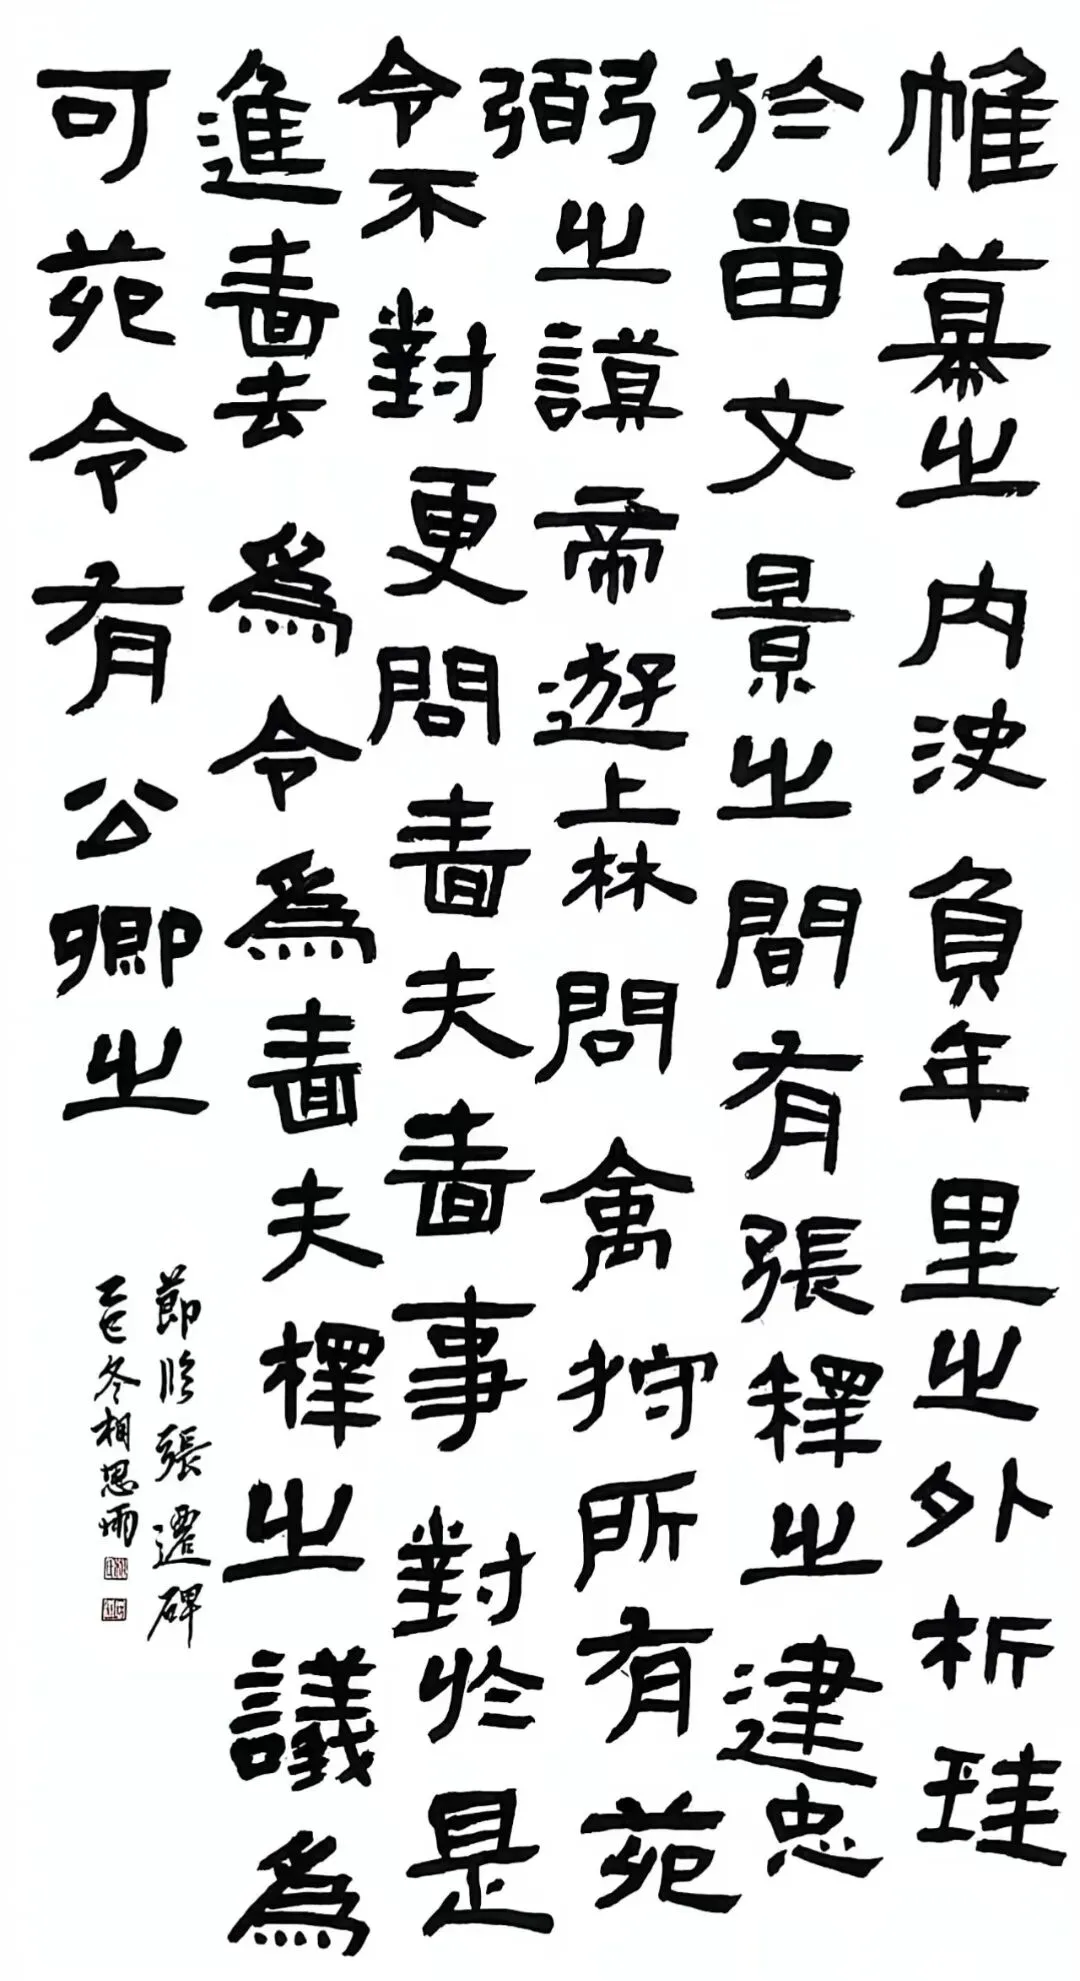 帷幕之內決負年里之外析珪
於留文景之間有張釋之建忠
弼之謨帝遊上林問禽狩所有苑
令不對更問嗇夫嗇事對於是
進嗇夫爲令爲嗇夫釋之議爲
可苑令有公卿之
節臨張遷碑
乙巳冬相思雨